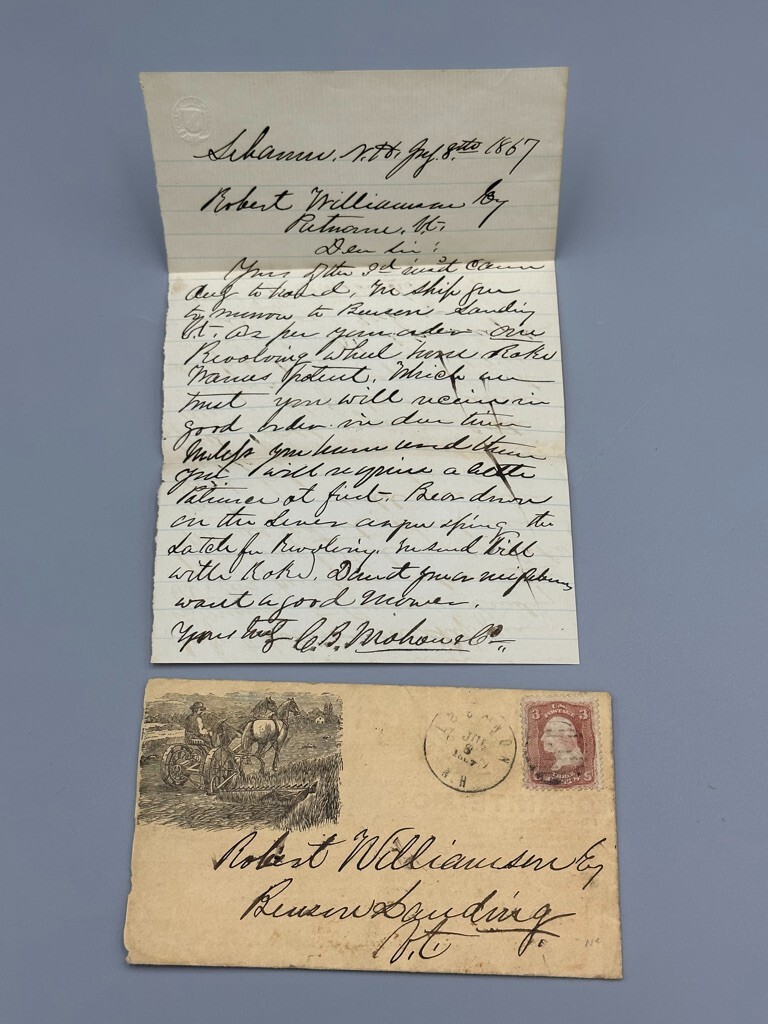 Lebanon, N.H. July 8th 1867
Robert Williamson Esq
Putnam. Vt.
Dear Sir:
Yours of the 3d inst came
duly to hand, We ship you
to morrow to Benson Landing
Vt. as per your order one
Revolving wheel horse Rake
patent. Which we
trust you will receive in
good order in due time
Unless you have used them
you will require a little
Patience at first. Bear down
on the Lever as you spring the
Latch for Revolving. We send Bill
with Rake. Don't your neighbors
want a good Mower.
Yours truly C. B. Mahan & Co
LEBANON
JUL
8
1867
N.H
3 U.S. POSTAGE 3
Robert Williamson Esq
Benson Landing
Vt.